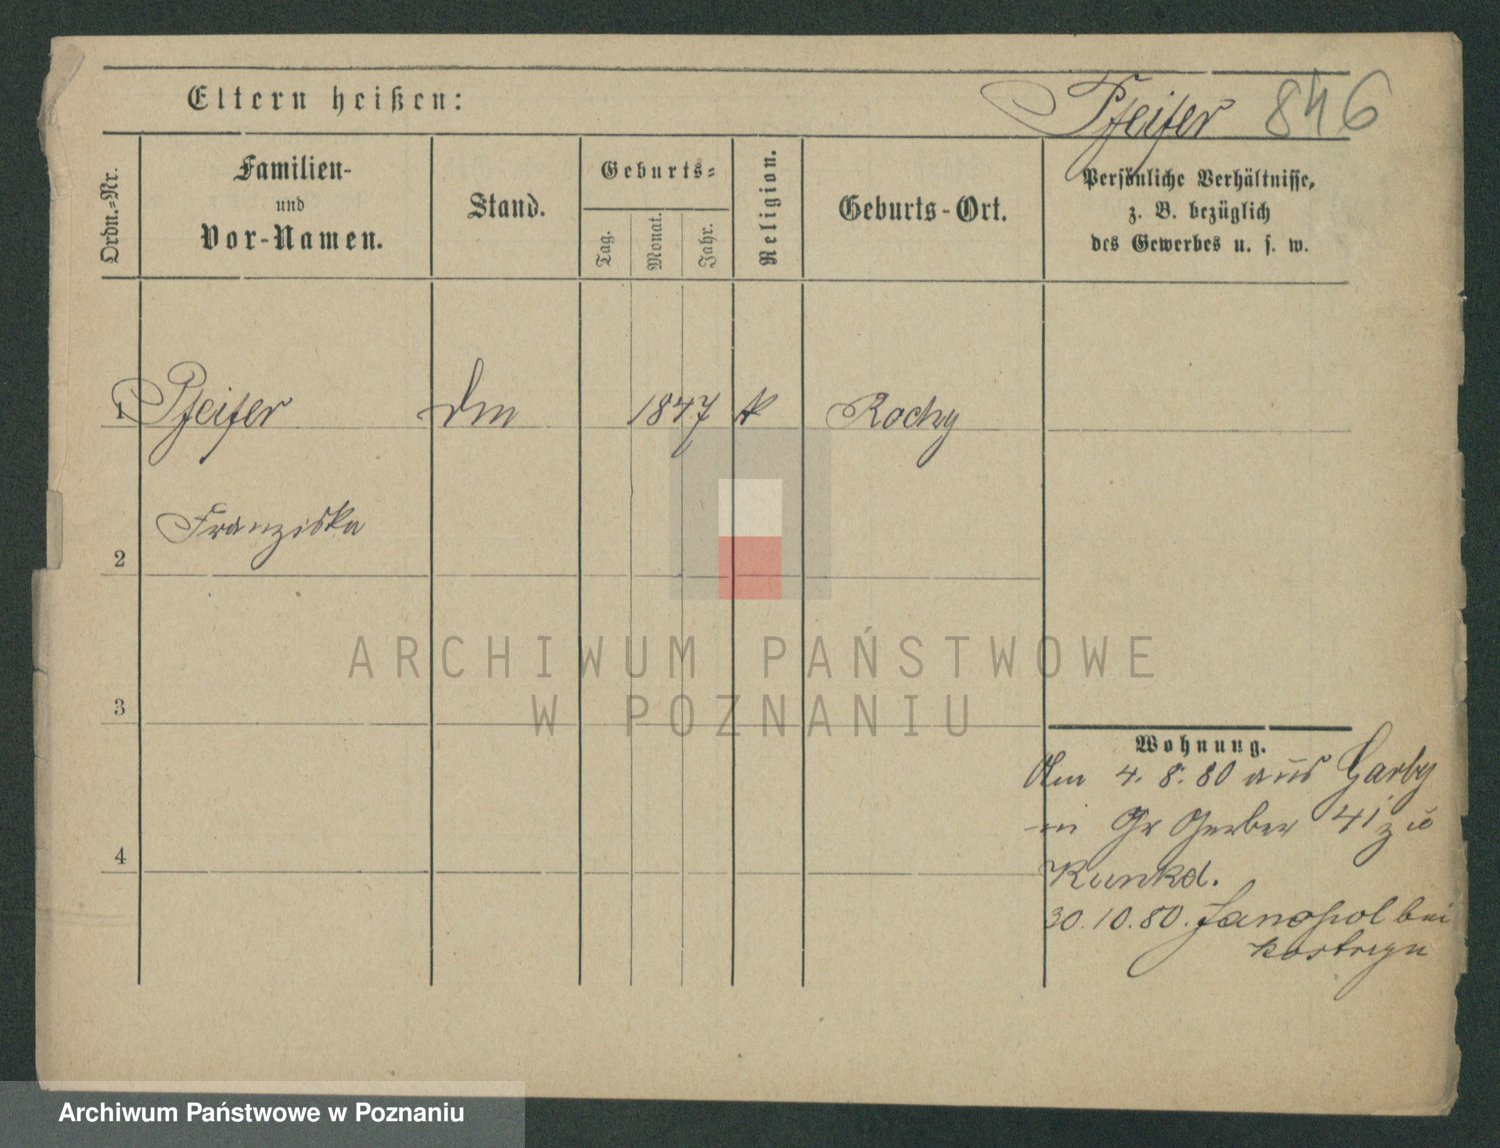 Eltern heißen:
Pfeifer 846
Ordn.-Nr.
Familien-
und
Vor-Namen.
Stand.
Geburts-
Tag.
Monat.
Jahr.
Religion.
Geburts-Ort.
Persönliche Verhältnisse,
z. B. bezüglich
des Gewerbes u. s. w.
1 Pfeifer Dm 1847 k Rocky
Franziska
2
3
4
Wohnung.
Am 4.8.80 aus Garby
in Gr Gerber 41 zu
Kunkel.
30.10.80. Janopol bei
Kostrzyn
ARCHIWUM PAŃSTWOWE
W POZNANIU
Archiwum Państwowe w Poznaniu